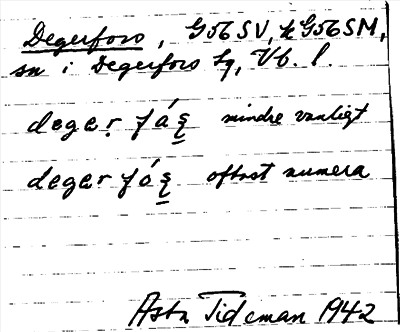 Degerfors, G56SV, k G56SM,
sn i Degerfors sg, Vb. l.
degeṛ fá̱ş mindre vanligt
deger fó̱ş oftast numera
Asta Tideman 1942